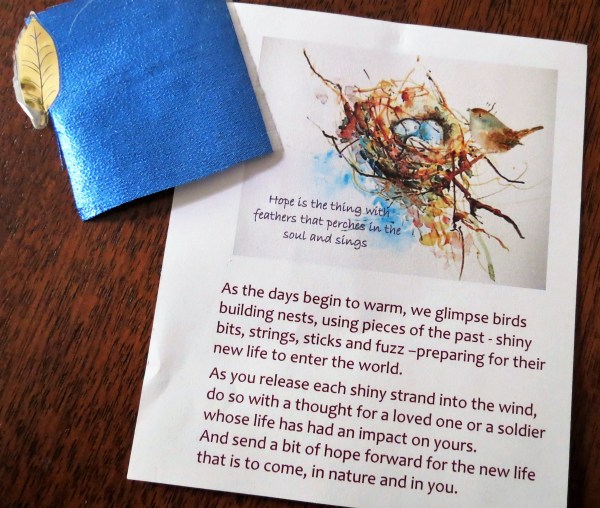 Hope is the thing with
feathers that perches in the
soul and sings
As the days begin to warm, we glimpse birds
building nests, using pieces of the past - shiny
bits, strings, sticks and fuzz –preparing for their
new life to enter the world.
As you release each shiny strand into the wind,
do so with a thought for a loved one or a soldier
whose life has had an impact on yours.
And send a bit of hope forward for the new life
that is to come, in nature and in you.